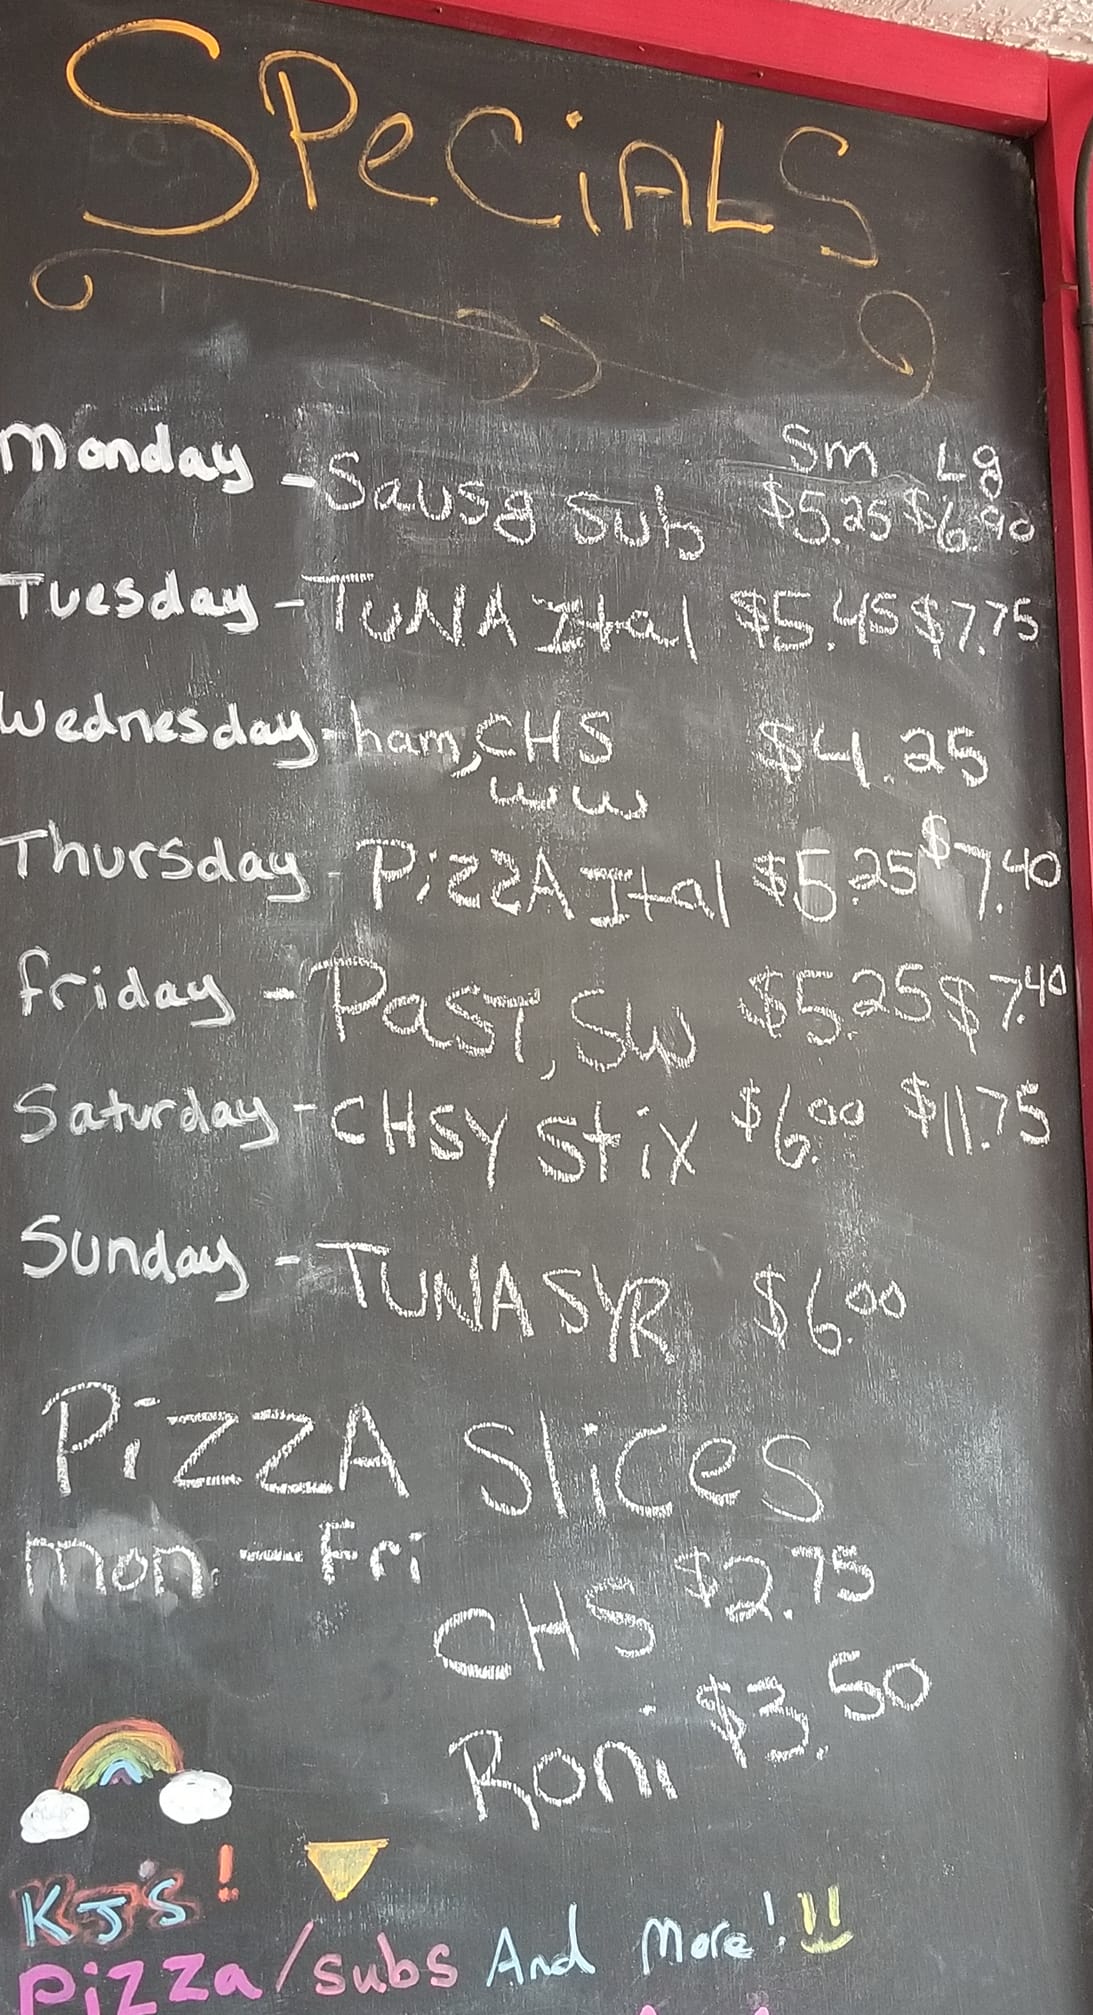 SPeCiALS
Sm Lg
Monday - Sausg Sub $5.25 $6.90
Tuesday - TUNA Ital $5.45 $7.75
Wednesday - ham, CHS $4.25
Thursday - PizzA Ital $5.25 $7.40
friday - PasT, SW $5.25 $7.40
Saturday - CHSY Stix $6.00 $11.75
Sunday - TUNA SYR $6.00
PiZZA Slices
mon - Fri
CHS $2.75
Roni $3.50
KJ's!
pizza/subs And More!